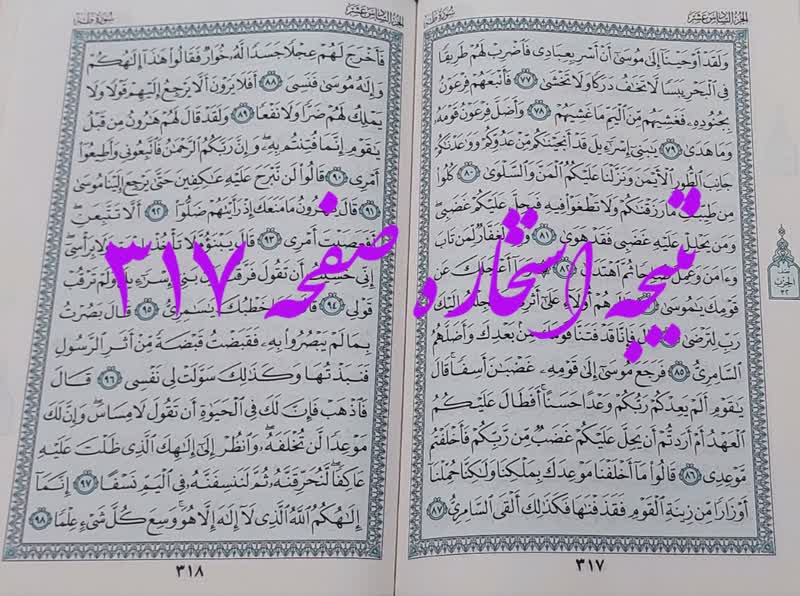 الجزء السادس عشر
سورة طه
وَلَقَدْ أَوْحَيْنَا إِلَىٰ مُوسَىٰ أَنْ أَسْرِ بِعِبَادِى فَٱضْرِبْ لَهُمْ طَرِيقًا
فِى ٱلْبَحْرِ يَبَسًا لَّا تَخَٰفُ دَرَكًا وَلَا تَخْشَىٰ ﴿٧٧﴾ فَأَتْبَعَهُمْ فِرْعَوْنُ
بِجُنُودِهِۦ فَغَشِيَهُم مِّنَ ٱلْيَمِّ مَا غَشِيَهُمْ ﴿٧٨﴾ وَأَضَلَّ فِرْعَوْنُ قَوْمَهُۥ
وَمَا هَدَىٰ ﴿٧٩﴾ يَٰبَنِىٓ إِسْرَٰٓءِيلَ قَدْ أَنجَيْنَٰكُم مِّنْ عَدُوِّكُمْ وَوَٰعَدْنَٰكُمْ
جَانِبَ ٱلطُّورِ ٱلْأَيْمَنَ وَنَزَّلْنَا عَلَيْكُمُ ٱلْمَنَّ وَٱلسَّلْوَىٰ ﴿٨٠﴾ كُلُوا۟
مِن طَيِّبَٰتِ مَا رَزَقْنَٰكُمْ وَلَا تَطْغَوْا۟ فِيهِ فَيَحِلَّ عَلَيْكُمْ غَضَبِى
وَمَن يَحْلِلْ عَلَيْهِ غَضَبِى فَقَدْ هَوَىٰ ﴿٨١﴾ لَغَفَّارٌ لِّمَن تَابَ
وَءَامَنَ وَعَمِلَ ٱهْتَدَىٰ ﴿٨٢﴾ أَعْجَلَكَ عَن
قَوْمِكَ يَٰمُوسَىٰ هُمْ أُو۟لَآءِ عَلَىٰٓ إِلَيْكَ
رَبِّ لِتَرْضَىٰ قَالَ فَإِنَّا قَدْ فَتَنَّا قَوْمَكَ مِنۢ بَعْدِكَ وَأَضَلَّهُمُ
ٱلسَّامِرِىُّ ﴿٨٥﴾ فَرَجَعَ مُوسَىٰٓ إِلَىٰ قَوْمِهِۦ غَضْبَٰنَ أَسِفًا قَالَ
يَٰقَوْمِ أَلَمْ يَعِدْكُمْ رَبُّكُمْ وَعْدًا حَسَنًا أَفَطَالَ عَلَيْكُمُ
ٱلْعَهْدُ أَمْ أَرَدتُّمْ أَن يَحِلَّ عَلَيْكُمْ غَضَبٌ مِّن رَّبِّكُمْ فَأَخْلَفْتُم
مَّوْعِدِى ﴿٨٦﴾ قَالُوا۟ مَآ أَخْلَفْنَا مَوْعِدَكَ بِمَلْكِنَا وَلَٰكِنَّا حُمِّلْنَآ
أَوْزَارًا مِّن زِينَةِ ٱلْقَوْمِ فَقَذَفْنَٰهَا فَكَذَٰلِكَ أَلْقَى ٱلسَّامِرِىُّ ﴿٨٧﴾
٣١٧
الجزء السادس عشر
سورة طه
فَأَخْرَجَ لَهُمْ عِجْلًا جَسَدًا لَّهُۥ خُوَارٌ فَقَالُوا۟ هَٰذَآ إِلَٰهُكُمْ
وَإِلَٰهُ مُوسَىٰ فَنَسِىَ ﴿٨٨﴾ أَفَلَا يَرَوْنَ أَلَّا يَرْجِعُ إِلَيْهِمْ قَوْلًا وَلَا
يَمْلِكُ لَهُمْ ضَرًّا وَلَا نَفْعًا ﴿٨٩﴾ وَلَقَدْ قَالَ لَهُمْ هَٰرُونُ مِن قَبْلُ
يَٰقَوْمِ إِنَّمَا فُتِنتُم بِهِۦ وَإِنَّ رَبَّكُمُ ٱلرَّحْمَٰنُ فَٱتَّبِعُونِى وَأَطِيعُوٓا۟
أَمْرِى ﴿٩٠﴾ قَالُوا۟ لَن نَّبْرَحَ عَلَيْهِ عَٰكِفِينَ حَتَّىٰ يَرْجِعَ إِلَيْنَا مُوسَىٰ
﴿٩١﴾ قَالَ يَٰهَٰرُونُ مَا مَنَعَكَ إِذْ رَأَيْتَهُمْ ضَلُّوٓا۟ ﴿٩٢﴾ أَلَّا تَتَّبِعَنِ
أَفَعَصَيْتَ أَمْرِى ﴿٩٣﴾ قَالَ يَبْنَؤُمَّ لَا تَأْخُذْ وَلَا بِرَأْسِىٓ
إِنِّى خَشِيتُ أَن تَقُولَ فَرَّقْتَ بَيْنَ بَنِىٓ إِسْرَٰٓءِيلَ وَلَمْ تَرْقُبْ
قَوْلِى ﴿٩٤﴾ خَطْبُكَ يَٰسَٰمِرِىُّ ﴿٩٥﴾ قَالَ بَصُرْتُ
بِمَا لَمْ يَبْصُرُوا۟ بِهِۦ فَقَبَضْتُ قَبْضَةً مِّنْ أَثَرِ ٱلرَّسُولِ
فَنَبَذْتُهَا وَكَذَٰلِكَ سَوَّلَتْ لِى نَفْسِى ﴿٩٦﴾ قَالَ
فَٱذْهَبْ فَإِنَّ لَكَ فِى ٱلْحَيَوٰةِ أَن تَقُولَ لَا مِسَاسَ وَإِنَّ لَكَ
مَوْعِدًا لَّن تُخْلَفَهُۥ وَٱنظُرْ إِلَىٰٓ إِلَٰهِكَ ٱلَّذِى ظَلْتَ عَلَيْهِ
عَاكِفًا لَّنُحَرِّقَنَّهُۥ ثُمَّ لَنَنسِفَنَّهُۥ فِى ٱلْيَمِّ نَسْفًا ﴿٩٧﴾ إِنَّمَآ
إِلَٰهُكُمُ ٱللَّهُ ٱلَّذِى لَآ إِلَٰهَ إِلَّا هُوَ وَسِعَ كُلَّ شَىْءٍ عِلْمًا ﴿٩٨﴾
٣١٨
نتیجه استخاره صفحه ۳۱۷